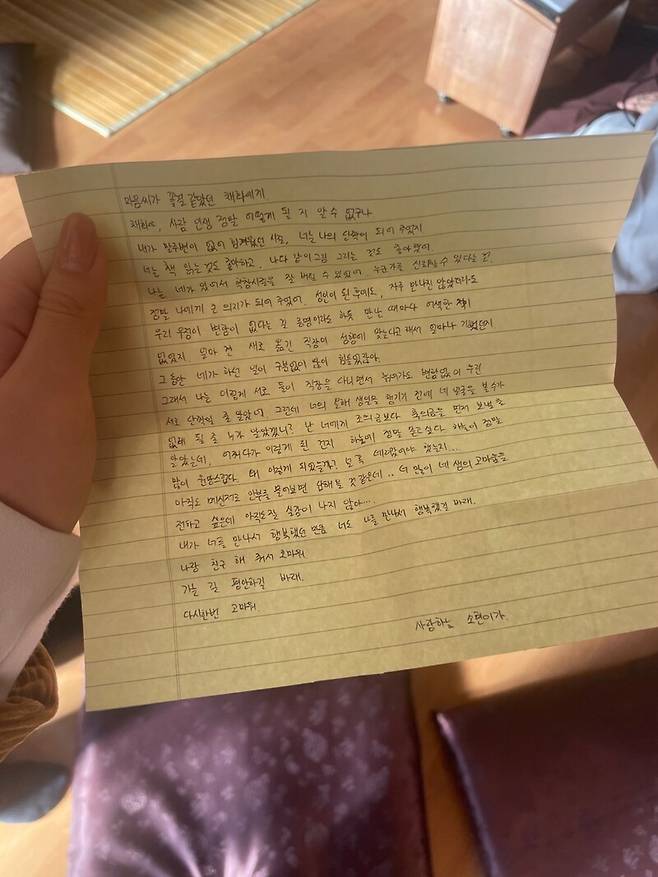 마음씨가 꽃결 같았던 채화에게
채화야, 사람 인생 정말 어떻게 될 지 알 수 없구나
내가 말주변이 없어 힘겨워했던 시절, 너는 나의 단짝이 되어 주었지
너는 책 읽는 것도 좋아하고, 나와 같이 그림 그리는 것도 좋아했어
나는 네가 있어서 학창시절을 잘 버틸 수 있었어. 누군가를 신뢰할 수 있다는 건
정말 나에게 큰 의지가 되어 주었어. 성인이 된 후에도, 자주 만나진 않았더라도
우리 우정이 변함이 없다는 걸 증명이라도 하듯 만날 때마다 어색한 적이
없었지 얼마 전 새로 옮긴 직장이 성향에 맞는다고 해서 얼마나 기뻤던지
그동안 네가 하던 일이 구분없이 많이 힘들었잖아.
그래서 나는 이렇게 서로 둘이 직장을 다니면서 늙어가도 변함없이 우린
서로 단짝일 줄 알았어 그런데 너의 올해 생일을 챙기기 전에 네 얼굴을 볼 수가
없게 될 줄 누가 알았겠니? 난 너에게 조의금보다 축의금을 먼저 보낼 줄
알았는데, 어쩌다가 이렇게 된 건지 하늘에 정말 묻고싶다. 하늘이 정말
많이 원망스럽다. 왜 이렇게 되었을까? 꼭 데려갔어야 했는지...
아직도 메신저로 안부를 물어보면 답해줄 것 같은데.. 너 없이 네 생의 고마움을
전하고 싶은데 아직도 잘 실감이 나지 않아...
내가 너를 만나서 행복했던 만큼 너도 나를 만나서 행복했길 바래.
나랑 친구 해 줘서 고마워
가는 길 평안하길 바래.
다시한번 고마워
사랑하는 소현이가.